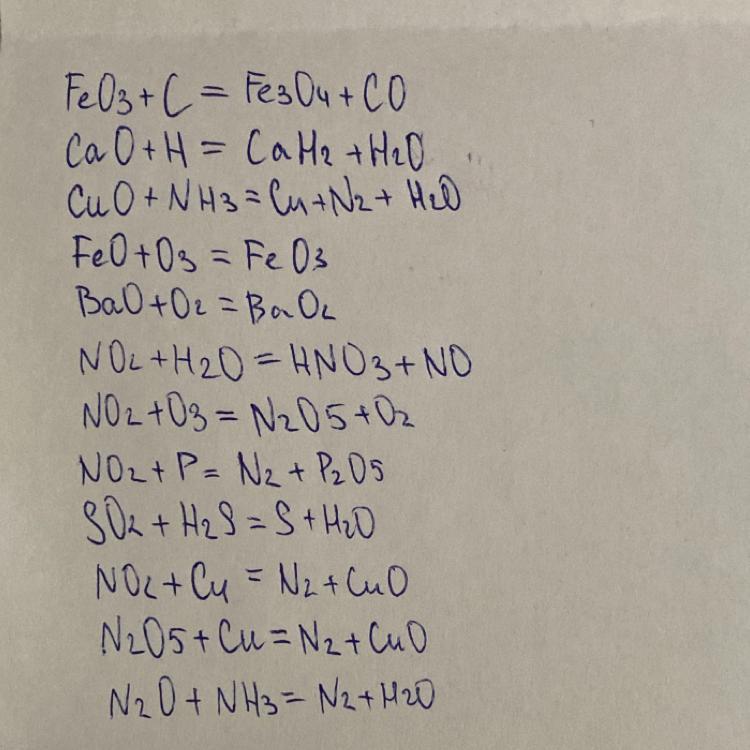 FeO3 + C = Fe3O4 + CO
CaO + H = CaH2 + H2O
CuO + NH3 = Cu + N2 + H2O
FeO + O3 = FeO3
BaO + O2 = BaO2
NO2 + H2O = HNO3 + NO
NO2 + O3 = N2O5 + O2
NO2 + P = N2 + P2O5
SO2 + H2S = S + H2O
NO2 + Cu = N2 + CuO
N2O5 + Cu = N2 + CuO
N2O + NH3 = N2 + H2O